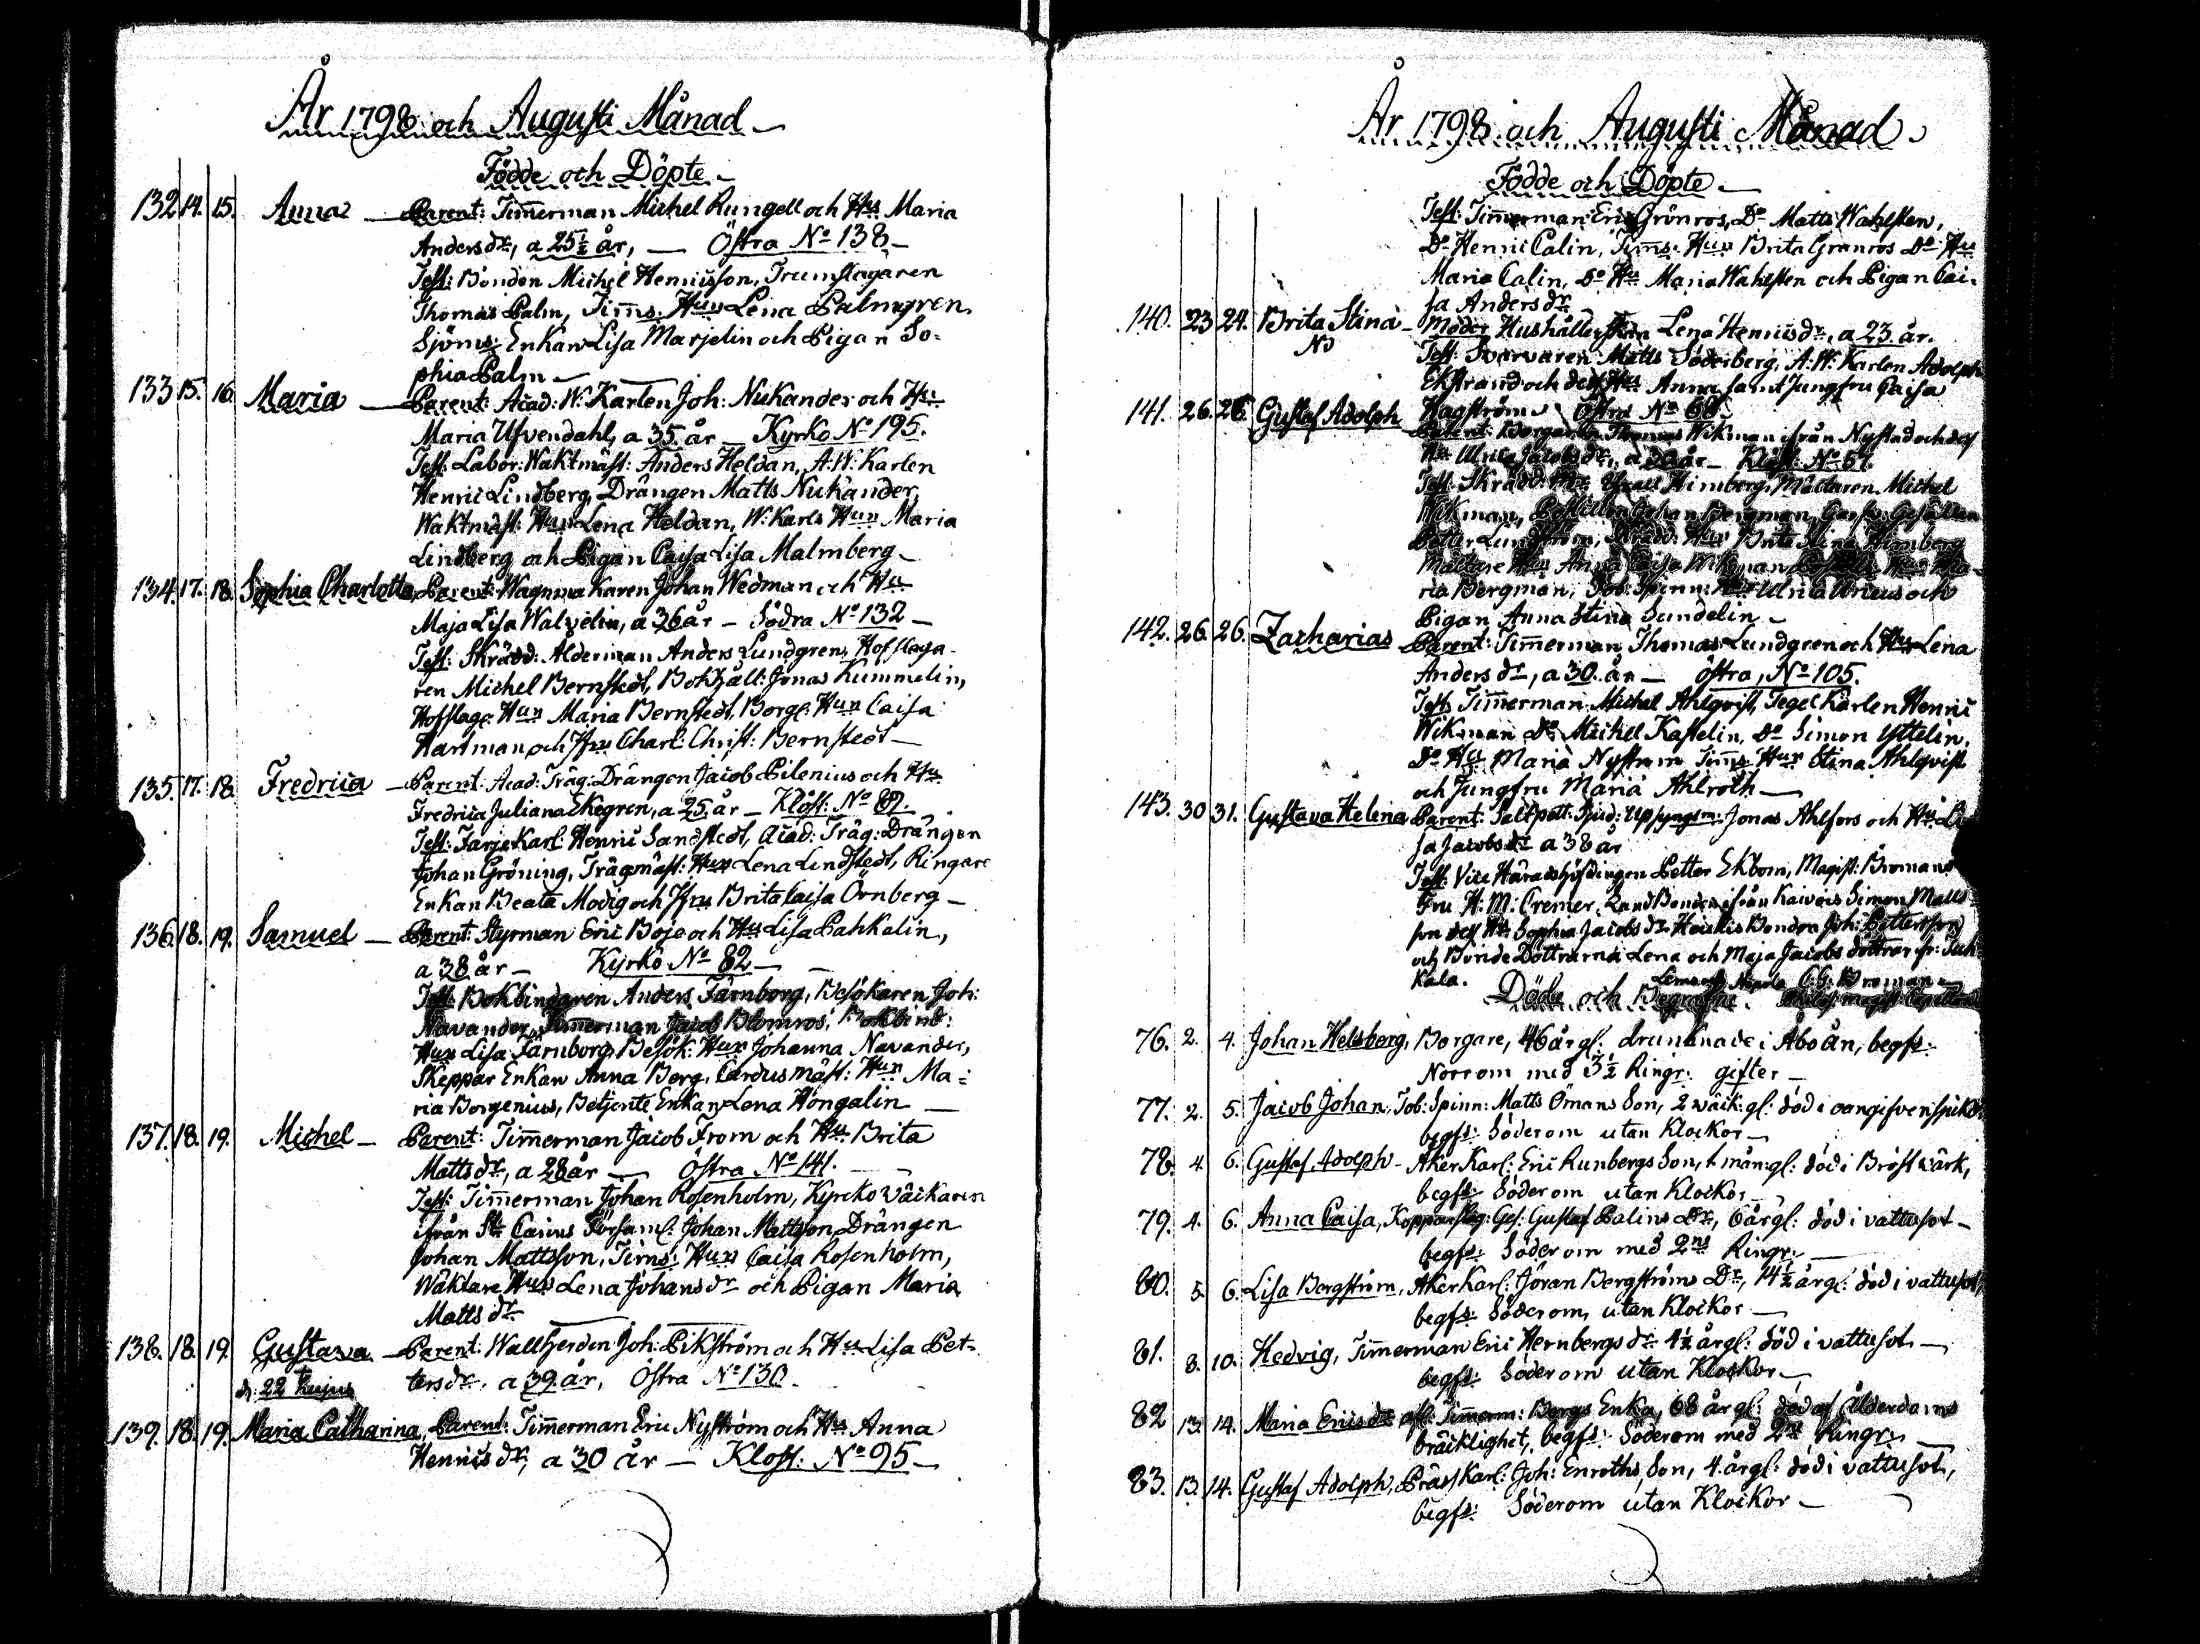 År 1798 och Augusti Månad
Födde och Döpte
132 14. 15. Anna Parent: Timmerman Michel Rungell och Hu Maria
Andersdr, a 25½ år, Östra No 138
Test: Bonden Michel Henricsson, Trumslagaren
Thomas Palm, Timms: Hun Lena Palmgren
Sjöms: Enkan Lisa Marjelin och Pigan So=
phia Palm
133 15. 16. Maria Parent: Acad: W: Karlen Joh: Nukander och Hu:
Maria Ufvendahl, a 35 år Kyrko No 195.
Test: Labor: Waktmäst: Anders Heldan, A: W: Karlen
Henric Lindberg, Drängen Matts Nukander,
Waktmäst: Hun Lena Heldan, W: Karls Hun Maria
Lindberg och Pigan Caisa Lisa Malmberg
134. 17. 18. Sophia Charlotta, Parent: Wagnmakaren Johan Wedman och Hu
Maja Lisa Walzelin, a 36 år Södra No 132
Test: Skrädd: Alderman Anders Lundgren, Hofslaga-
ren Michel Bernstedt, Bokhåll: Jonas Kummelin,
Hofslag: Hun Maria Bernstedt, Borg: Hun Caisa
Hartman och Jfru Charl: Christ: Bernstedt
135. 17. 18. Fredrica Parent: Acad: Träg: Drängen Jacob Pilenius och Hu
Fredrica Juliana Ekegren, a 25 år Klöst: No 82.
Test: Färjekarl: Henric Sandstedt, Acad: Träg: Drängen
Johan Gröning, Trägmäst: Hun Lena Lindstedt, Ringare
Enkan Beata Modig och Jfru Brita Caisa Örnberg
136 18. 19. Samuel Parent: Styrman Eric Boje och Hu Lisa Pahkalin,
a 38 år Kyrko No 82
Test: Bokbindaren Anders Färnborg, Besökaren Joh:
Navander, Timmerman Jacob Blomros, Bokbind:
Hun Lisa Färnborg, Besök: Hun Johanna Navander,
Skeppar Enkan Anna Berg, Cardusmäst: Hun Ma=
ria Borgenius, Betjente Enkan Lena Hongalin
137. 18. 19. Michel Parent: Timmerman Jacob From och Hu Brita
Mattsdr, a 28 år Östra No 141.
Test: Timmerman Johan Rosenholm, Kyrkowäckaren
ifrån St: Carins Församl: Johan Mattsson, Drängen
Johan Mattsson, Timms: Hun Caisa Rosenholm,
Wäktare Hun Lena Johansdr och Pigan Maria
Mattsdr
138. 18. 19. Gustava Parent: Wallherden Joh: Pikström och Hu Lisa Pet-
d: 22 hujus tersdr, a 39 år, Östra No 130
139. 18. 19. Maria Catharina, Parent: Timmerman Eric Nyström och Hu Anna
Henricsdr, a 30 år Klöst: No 95
År 1798 och Augusti Månad
Födde och Döpte
Test: Timmerman Eric Grönros, Do Matts Wahlsten,
Do Henric Calin, Timms: Hun Brita Grönros Do Hu
Maria Calin, Do Hu Maria Wahlsten och Pigan Cai-
sa Andersdr
140. 23 24. Brita Stina Moder Hushållerskan Lena Henricsdr, a 23 år.
No Test: Svarvaren Matts Söderberg, A: W: Karlen Adolph
Ekstrand och dess Hu Anna samt Jungfru Caisa
Hagström Östra No 68
141. 26. 26. Gustaf Adolph Parent: Borgaren Thomas Wikman ifrån Nystad och dess
Hu Ulrica Jacobsdr, a år Klöst: No 67.
Test: Skrädd: Himberg, Mältaren Michel
Wikman, Johan Bergman,
Petter Lundström, Skrädd: Hun Brita Stina Himberg
Mältare Hun Anna Caisa Wikman Hun Ma-
ria Bergman, Tob: Spinn: Hun Ulrica och
Pigan Anna Stina Sundelin
142. 26. 26. Zacharias Parent: Timmerman Thomas Lundgren och Hu Lena
Andersdr, a 30 år Östra, No 105.
Test: Timmerman Michel Ahlqvist, Tegelkarlen Henric
Wikman Do Michel Kastelin, Do Simon Yttelin,
Do Hu Maria Nyström Timms Hun Stina Ahlqvist
och Jungfru Maria Ahlroth
143. 30 31. Gustava Helena Parent: Saltpett: Sjud: Upsyngsm: Jonas Ahlfors och Hu Li
sa Jacobsdr a 38 år
Test: Vice Häradshöfdingen Petter Ekbom, Magist: Bromans
Fru H: M: Cremer, Landbonden ifrån Kaivois Simon Matts
son dess Hu: Sophia Jacobsdr Bonden Joh: Pettersson
och Bonde Döttrarna Lena och Maja Jacobs döttrar fr:
kala.
Döde och Begrafne
76. 2. 4. Johan Helsberg, Borgare, 46 år gl: drunknade i Åbo ån, begfs:
Norrom med 3½ Ringr: gifter
77. 2. 5. Jacob Johan, Tob: Spinn: Matts Ömans Son, 2 wäck: gl: död i oangifven sjukd:
begfs: Söderom utan Klockor
78. 4. 6. Gustaf Adolph Åkerkarl: Eric Runbergs Son, 1 mån: gl: död i Bröstwärk,
begfs: Söderom utan Klockor
79. 4. 6. Anna Caisa, Kopparslag: Ges: Gustaf Palins Dr, 6 år gl: död i vattusot
begfs: Söderom med 2ne Ringr:
80. 5. 6. Lisa Bergström, Åkerkarl: Jöran Bergströms Dr, 14½ år gl: död i vattusot,
begfs: Söderom, utan Klockor
81. 8. 10. Hedvig, Timmerman Eric Hernbergs dr 4½ år gl: död i vattusot
begfs: Söderom utan Klockor
82 13. 14. Maria Ericsdr afl: Timmerm: Bergs Enka, 68 år gl: död af Ålderdoms
bräcklighet, begfs: Söderom med 2ne Ringr:
83. 13. 14. Gustaf Adolph, Präss Karl: Joh: Enroths Son, 4 år gl: död i vattusot,
begfs: Söderom utan Klockor